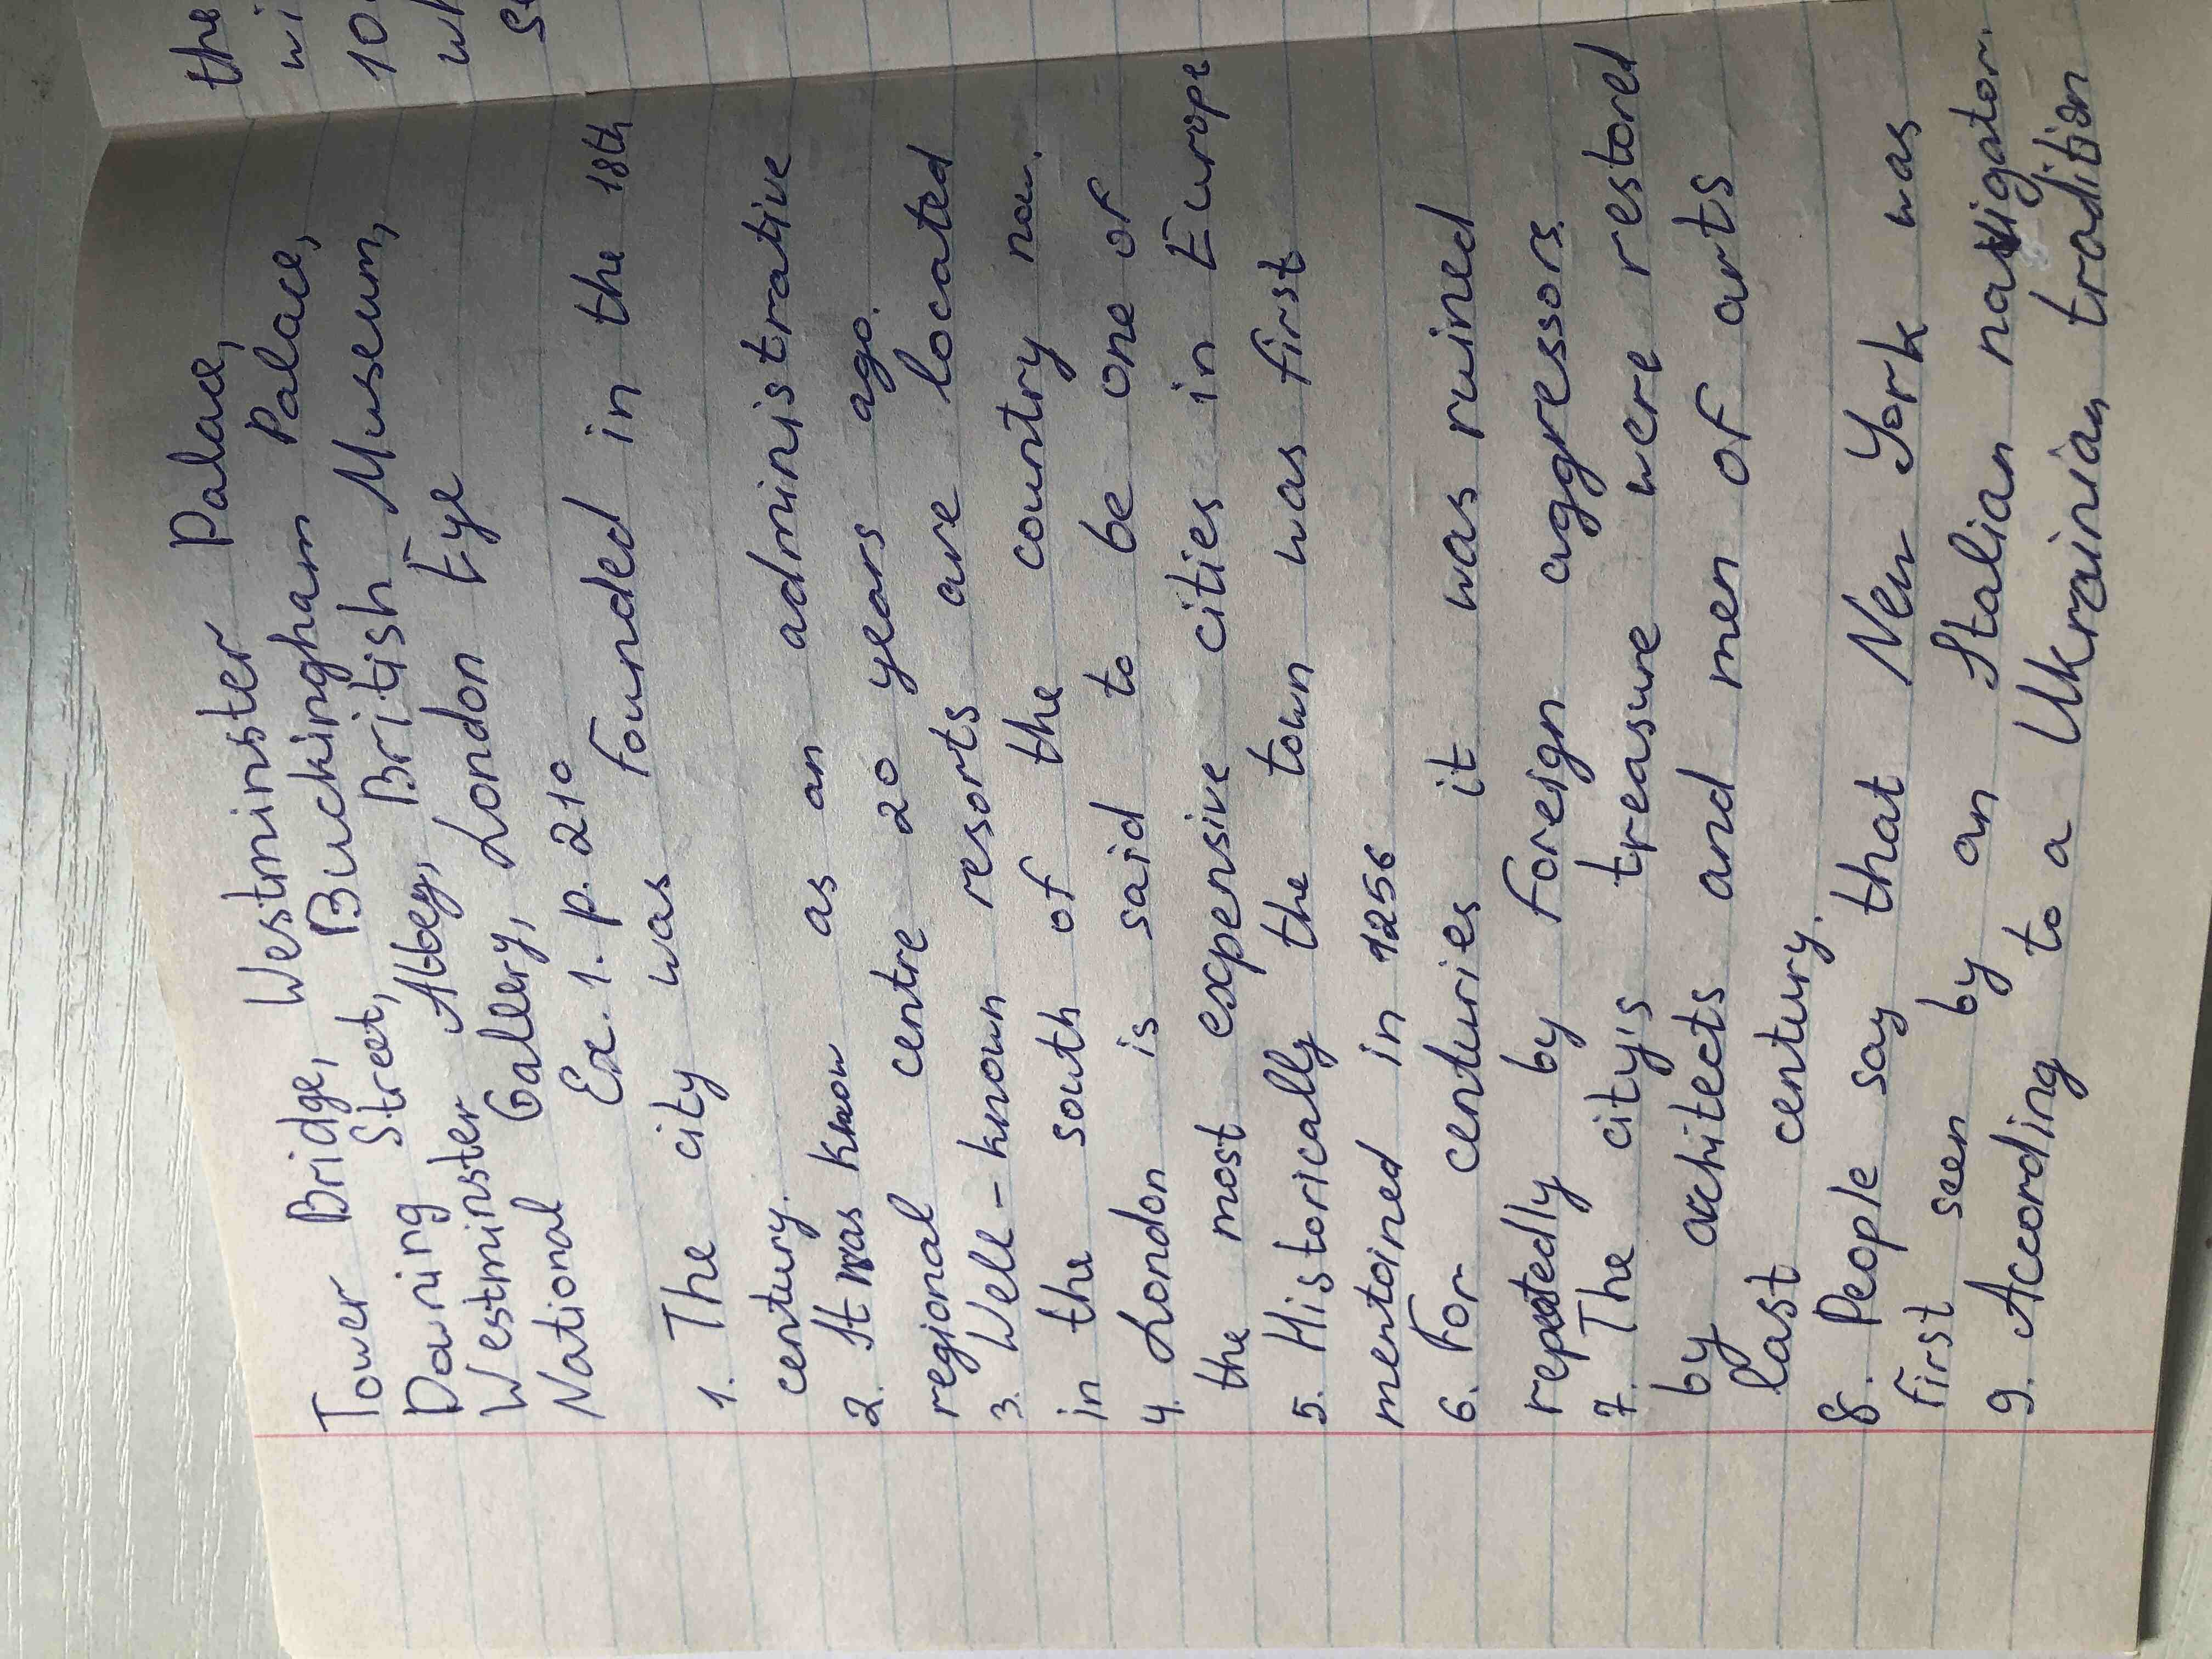 Tower Bridge, Westminster Palace,
Downing Street, Buckingham Palace,
Westminster Abbey, British Museum,
National Gallery, London Eye
Ex. 1. p. 210
1. The city was founded in the 18th
century.
2. It was know as an administrative
regional centre 20 years ago.
3. Well-known resorts are located
in the south of the country now.
4. London is said to be one of
the most expensive cities in Europe
5. Historically the town was first
mentoined in 1256
6. For centuries it was ruined
repatedly by foreign aggressors.
7. The city's treasure were restored
by achitects and men of arts
last century.
8. People say that New York was
first seen by an Italian navigator.
9. According to a Ukrainian tradition
the
wi
10.
wh